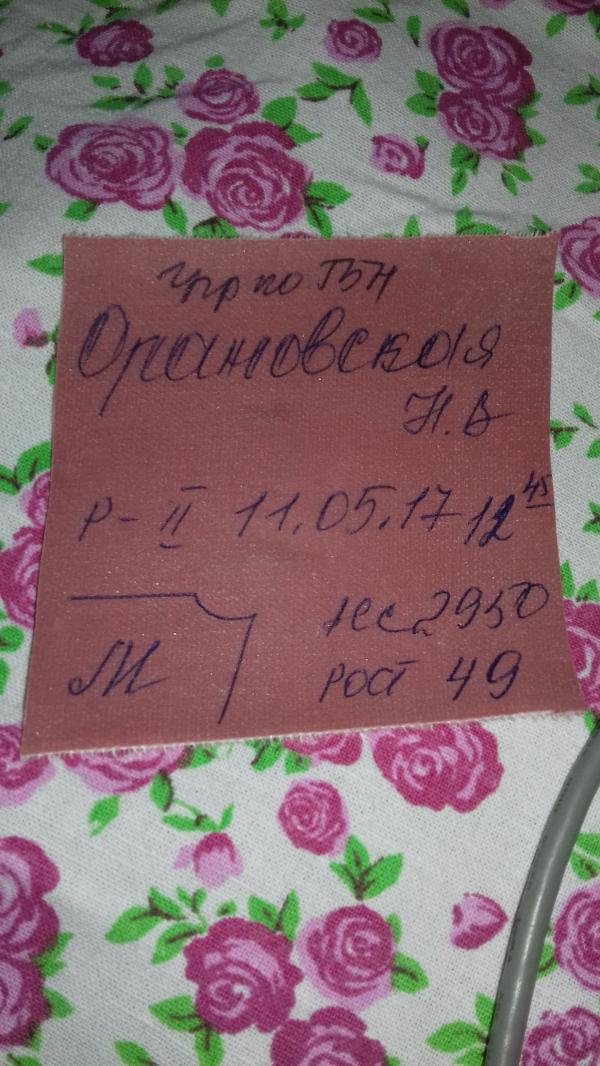 гр по ТБН
Орановская
Н.В
Р-II 11.05.17 12 45
М
вес 2950
рост 49